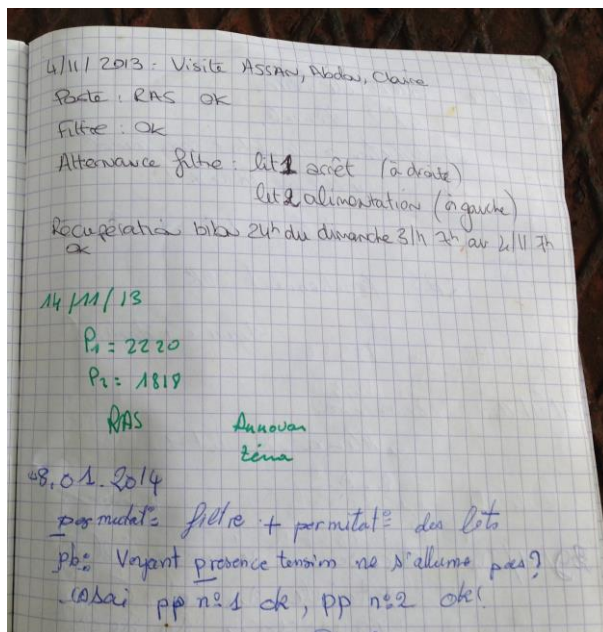 4/11/2013 : Visite ASSAN, Abdou, Claire
Poste : RAS OK
Filtre : OK
Alternance filtre : lit 1 arrêt (à droite)
lit 2 alimentation (à gauche)
Récupération bilan 24h du dimanche 3/11 7h au 4/11 7h
OK
14/11/13
P1 = 2220
P2 = 1818
RAS
zéina
8.01.2014
permutat° filtre + permutat° des lits
pb : Voyant presence tension ne s'allume pas ?
essai pp n° 1 ok, pp n° 2 ok !